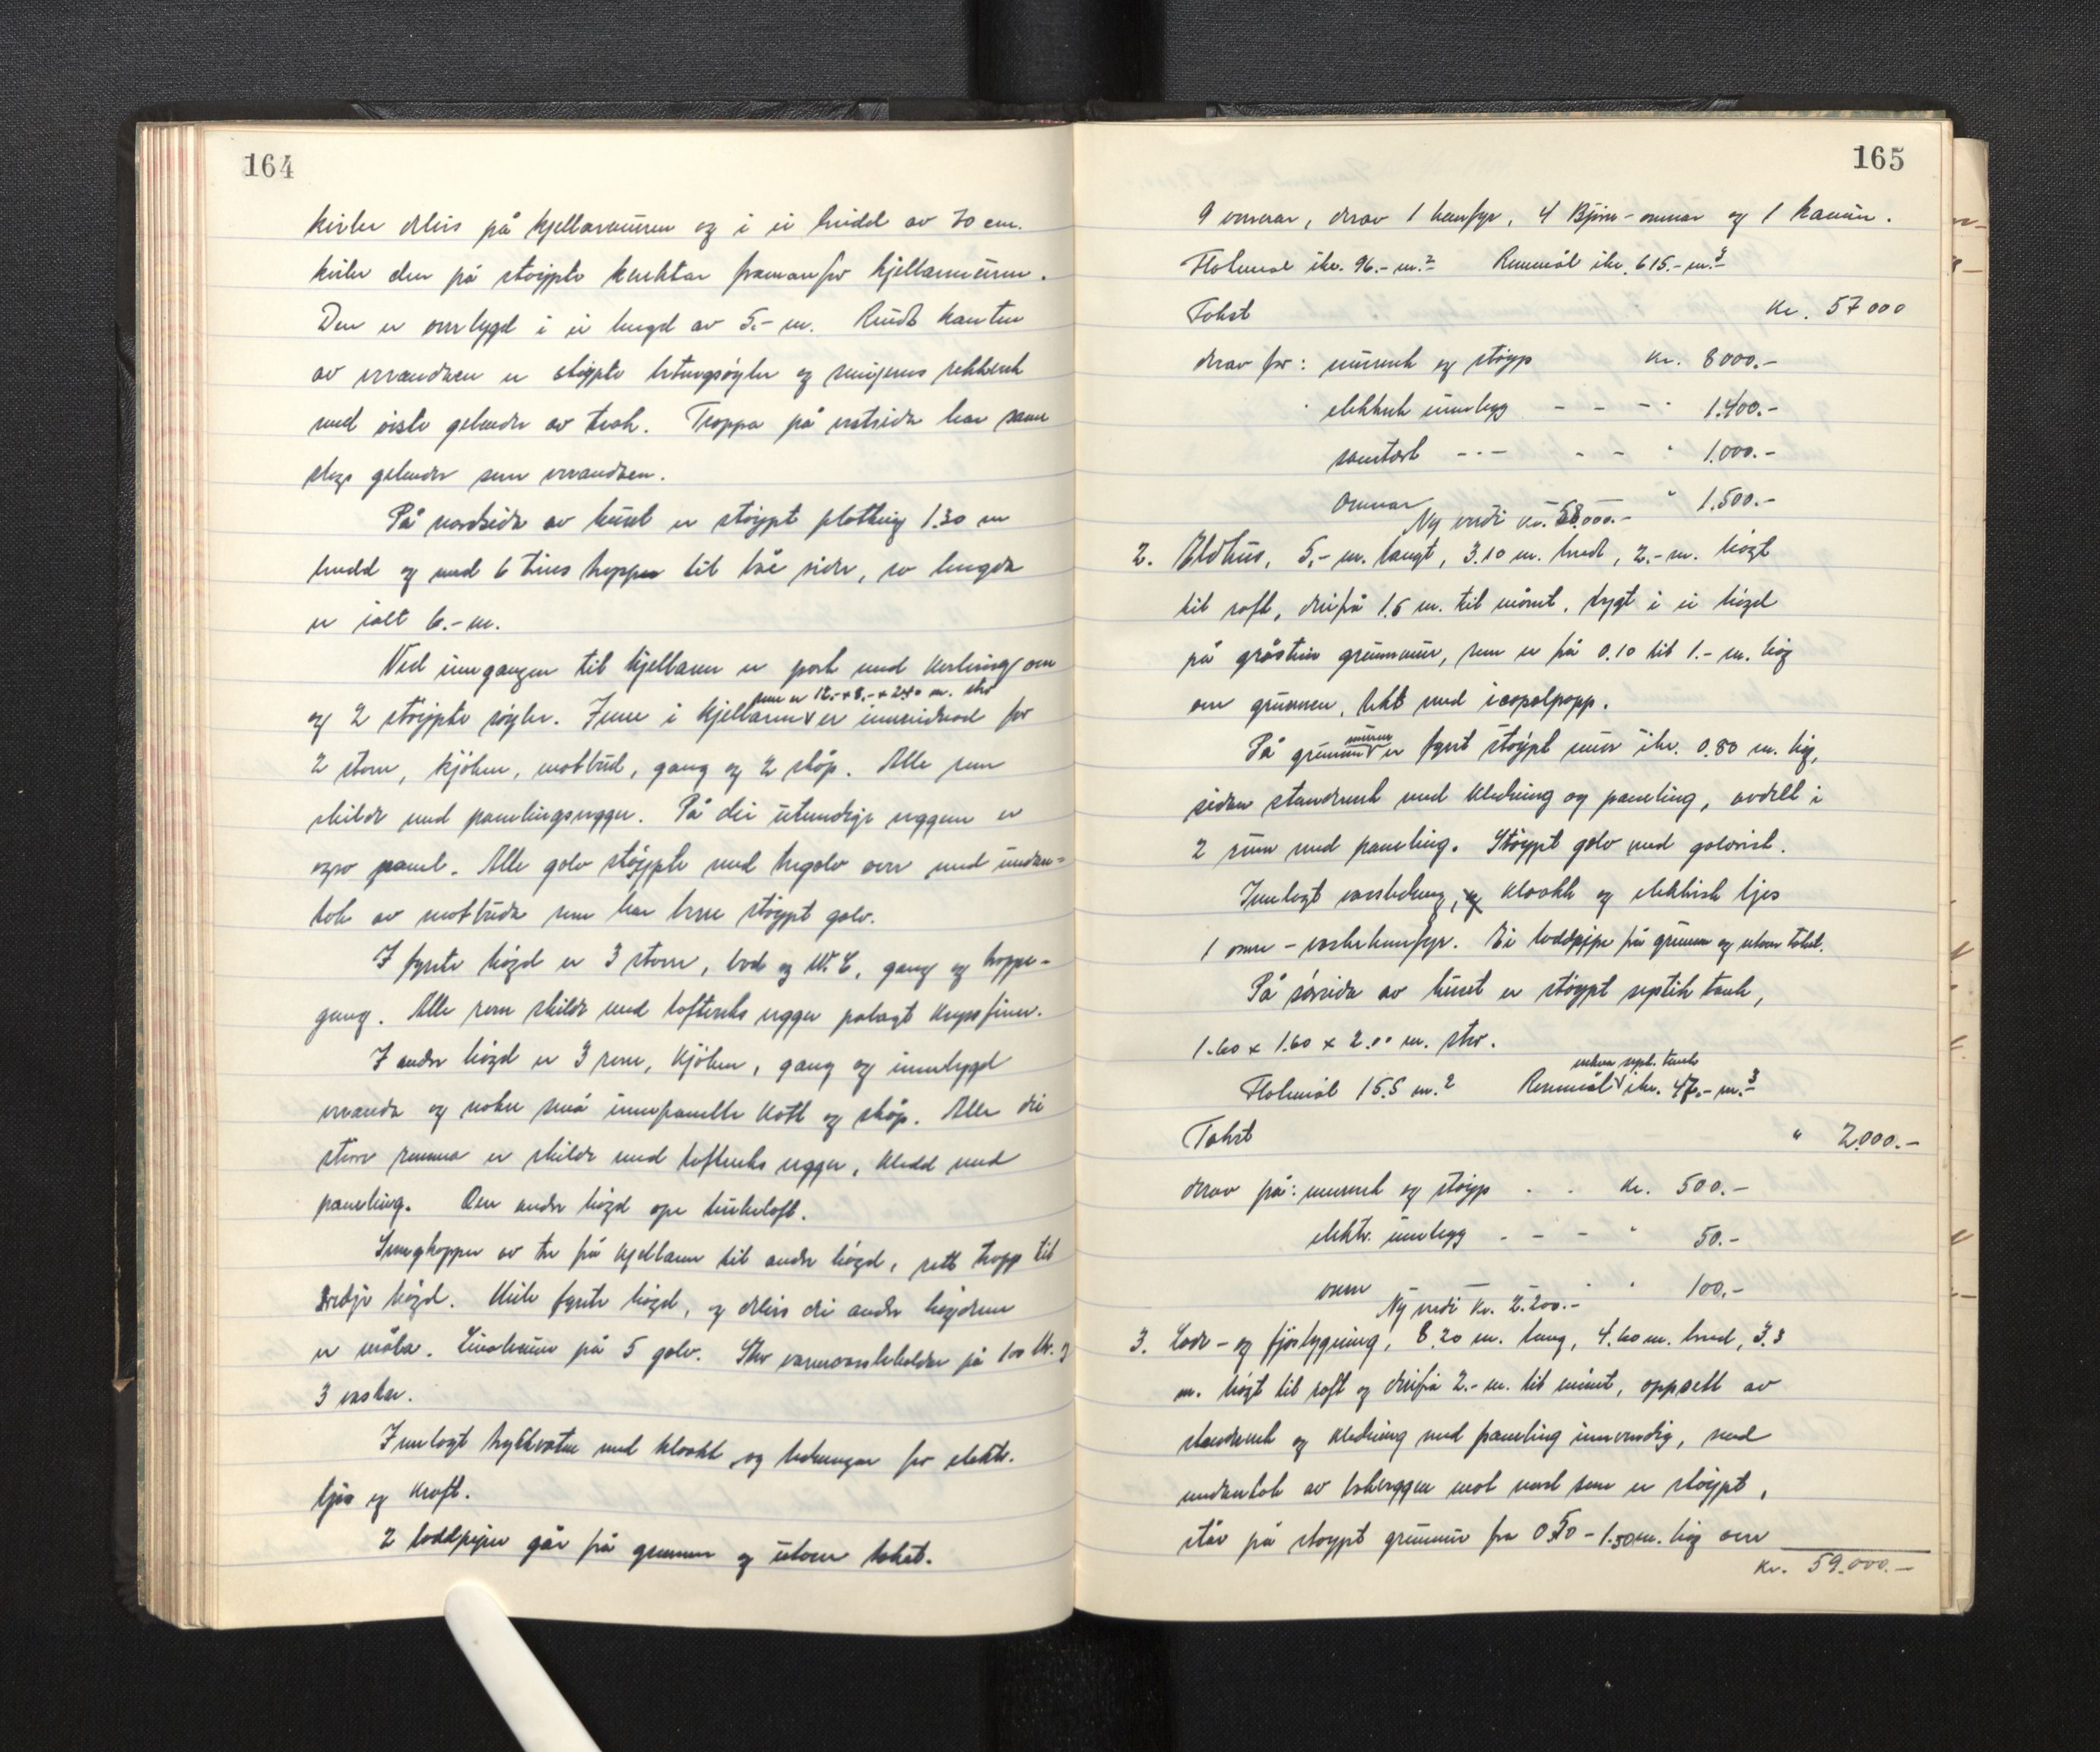 164
kviler delvis på kjellarmuren og i ei breidd av 70 cm.
kviler den på støypte knektar framanfor kjellarmuren.
Den er overbygd i ei lengd av 5.- m. Rundt kanten
av verandaen er støypte betongsøyler og smijerns rekkverk
med øvste gelender av teak. Troppa på vestsida har same
slags gelender som verandaen.
På nordsida av huset er støypt plotting 1.30 m
breidd og med 6 trins troppe til båe sider, so lengda
er ialt 6.- m.
Ved inngangen til kjellaren er port med kvelving om
som er 12.- x 8.- x 2.40 m. stor
og 2 støypte søyler. Inne i kjellaren er innreidnad for
2 stover, kjøken, matbud, gang og 2 skåp. Alle rom
skilde med panelingsvegger. På dei utvendige veggene er
ogso panel. Alle golv støypte med tregolv over med undan-
tak av matbuda som har berre støypt golv.
I fyrste høgd er 3 stover, bod og W.C, gang og troppe-
gang. Alle rom skilde med tofterks vegger pålagt kryssfiner.
I andre høgd er 3 rom, kjøken, gang og innebygd
veranda og nokre små innepanelte kott og skåp. Alle dei
større romma er skilde med tofterks vegger, kledd med
paneling. Over andre høgd ope turkeloft.
Svingtropper av tre frå kjellaren til andre høgd, rett tropp til
tredje høgd. Heile fyrste høgd, og delvis dei andre høgdene
er måla. Linoleum på 5 golv. Stor varmvassbehaldar på 100 ltr. og
3 vaskar.
Innlagt trykkvatn med kloakk og ledningar for elektr.
ljos og kraft.
2 loddpiper går frå grunnen og utover taket.
165
9 omnar, derav 1 komfyr, 4 Bjørn-omnar og 1 kamin.
Flatemål ikr. 96.- m.2 Rommål ikr. 615.- m.3
Takst Kr. 57000
derav for: murverk og støyp kr. 8000.-
" elektrisk innlegg - - - " 1.400.-
sanitært - - - - - " 1.000.-
Omnar " 1.500.-
Ny verdi kr. 58.000.-
2. Eldhus, 5,- m. langt, 3.10 m. breidt, 2.- m. høgt
til raft, derifrå 1.5 m. til mønet, bygt i ei høgd
på gråstein grunnmur, som er frå 0.10 til 1.- m. høg
over grunnen, tekt med icopalpapp.
På grunnmuren er fyrst støypt mur ikr. 0.80 m. høg,
sidan standverk med kledning og paneling, avdelt i
2 rum med paneling. Støypt golv med golvrist.
Innlagt vassledning, kloakk og elektrisk ljos
1 omn - vaskekomfyr. Ei loddpipe frå grunnen og utover taket.
På sørsida av huset er støypt septik tank,
1.60 x 1.60 x 2.00 m. stor.
utan sept. tank
Flatemål 15.5 m.2 Rommål ikr. 47.- m.3
Takst " 2.000.-
derav på: murverk og støyp . . kr. 500.-
elektr. innlegg - - - " 50.-
omn " 100.-
Ny verdi kr. 2.200.-
3. Løde- og fjøsbygning, 8.20 m. lang, 4.60 m. breid, 3.3
m. høgt til raft og derifrå 2.- m. til mønet, oppsett av
standverk og kledning med paneling innvendig, med
undantak av bakveggen mot nord som er støypt,
står på støypt grunnmur fra 0.50 - 1.50 m. høg over
Kr. 59.000.-